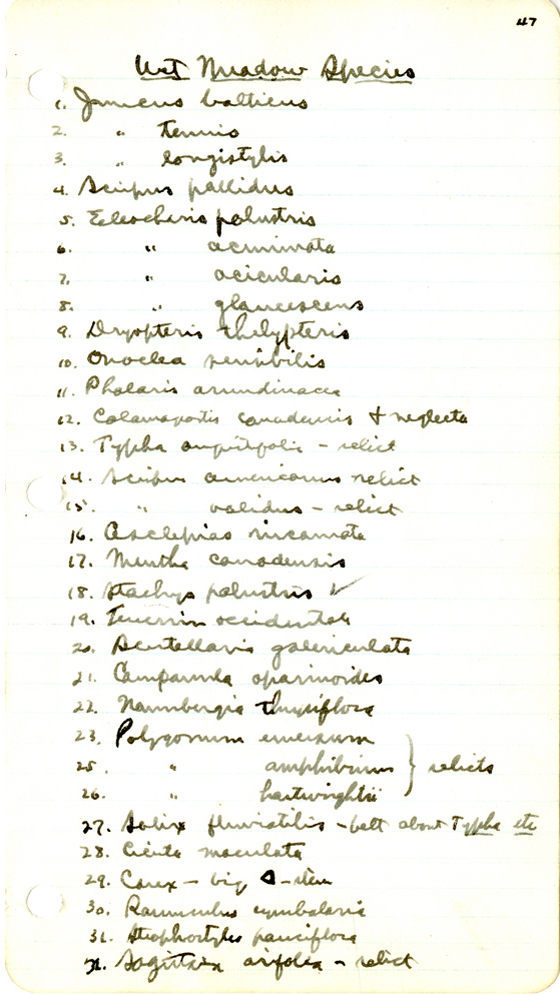 47
Wet Meadow Species
1. Juncus balticus
2. " tenuis
3. " longistylis
4. Scirpus pallidus
5. Eeleocharis palustris
6. " acuminata
7. " acicularis
8. " glaucescens
9. Dryopteris thelypteris
10. Onoclea sensibilis
11. Phalaris arundinacea
12. Calamagrostis canadensis + neglecta
13. Typha angustifolia - relict
14. Scirpus americanus relict
15. " validus - relict
16. Asclepias incarnata
17. Mentha canadensis
18. Stachys palustris ✓
19. Teucrium occidentale
20. Scutellaria galericulata
21. Campanula aparinoides
22. Naumbergia thyrsiflora
23. Polygonum emersum
25. " amphibium } relicts
26. " hartwrightii
27. Salix fluviatilis - belt about Typha etc
28. Cicuta maculata
29. Carex - big Δ-stem
30. Ranunculus cymbalaria
31. Strophostyles pauciflora
32. Sagittaria arifolia - relict